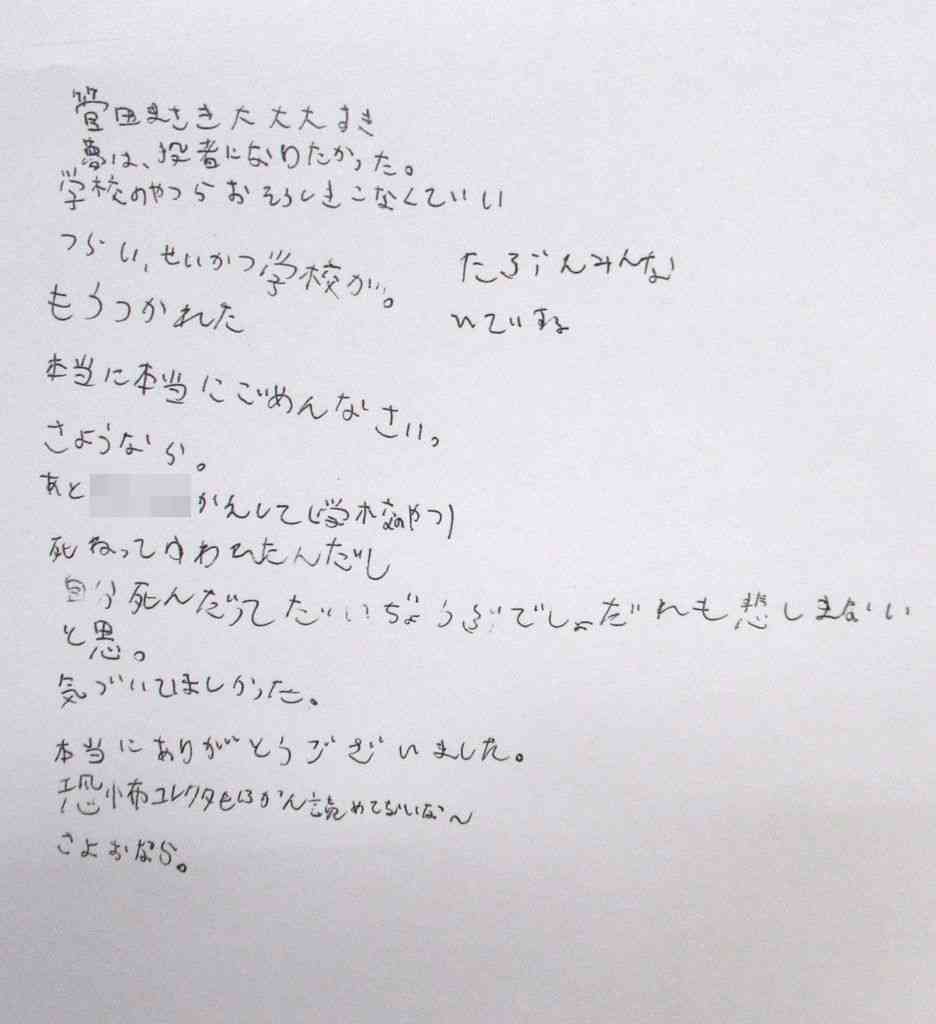 菅田まさき大大大すき
夢は、役者になりたかった。
学校のやつらおそうしきこなくていい
つらい、せいかつ学校が。
もうつかれた
みんな
本当に本当にごめんなさい。
さようなら。
あと
かえして(学校のやつ)
死ねってゆわれたんだし
自分死んだってだいじょうぶでしょだれも悲しまない
と思。
気づいてほしかった。
本当にありがとうございました。
恐怖コレクター
さよおなら。